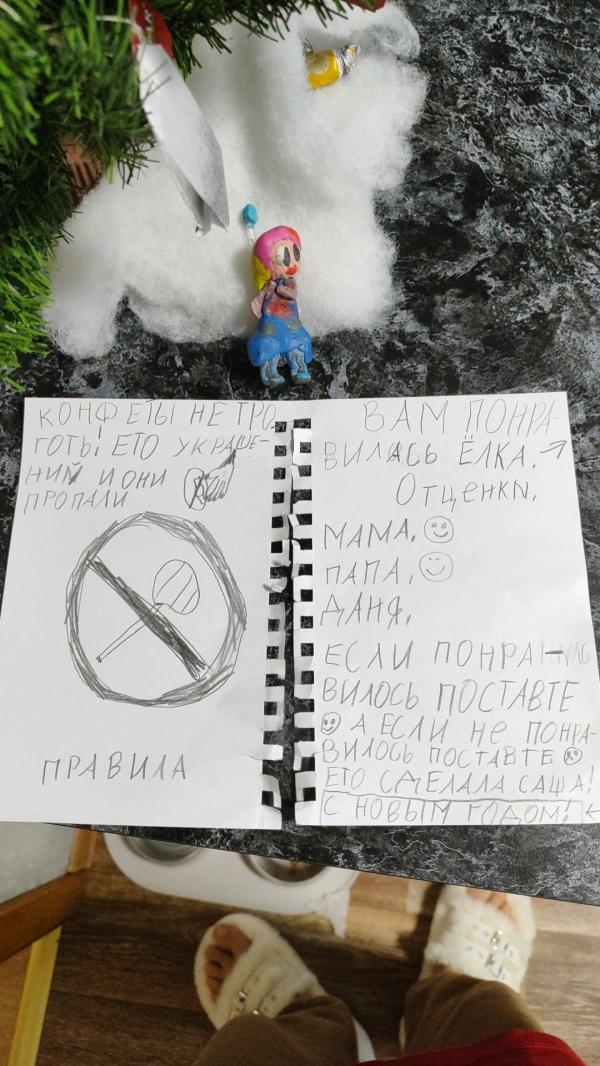 КОНФЕТЫ НЕ ТРО-
ГОТЬ! ЕТО УКРАШЕ-
НИЙ И ОНИ
ПРОПАЛИ
ПРАВИЛА
ВАМ ПОНРА-
ВИЛАСЬ ЁЛКА.
ОТЦЕНКИ.
МАМА.
ПАПА.
ДАНЯ.
ЕСЛИ ПОНРА
ВИЛОСЬ ПОСТАВТЕ
А ЕСЛИ НЕ ПОНРА-
ВИЛОСЬ ПОСТАВТЕ
ЕТО СДЕЛАЛА САША!
С НОВЫМ ГОДОМ!